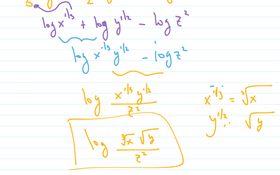 log x^{1/3} + log y^{1/2} - log z^2
log x^{1/3} y^{1/2} - log z^2
log \frac{x^{1/3} y^{1/2}}{z^2}
x^{1/3} = \sqrt[3]{x}
y^{1/2} = \sqrt{y}
log \frac{\sqrt[3]{x} \sqrt{y}}{z^2}